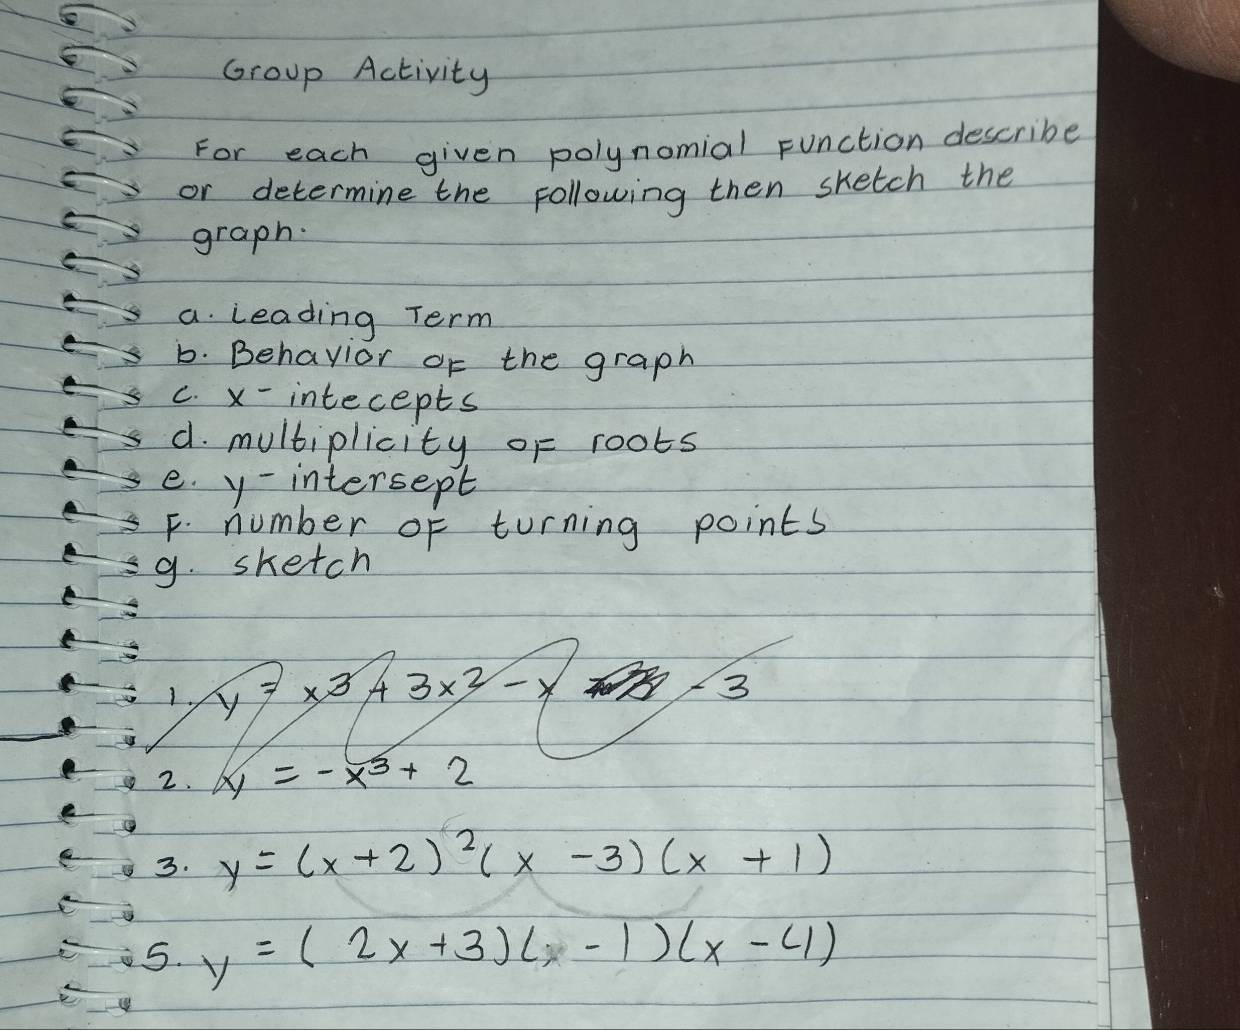 Group Activity
For each given polynomial Function describe
or determine the Following then sketch the
graph.
a. Leading Term
b. Behavior OF the graph
c. x-intecepts
d. multiplicity OF roots
e. y-intersept
F. number OF turning points
g. sketch
1. y = x³ + 3x² - x - 3
2. y = -x³ + 2
3. y = (x+2)²(x -3)(x +1)
5. y = (2x+3)(x -1)(x -4)